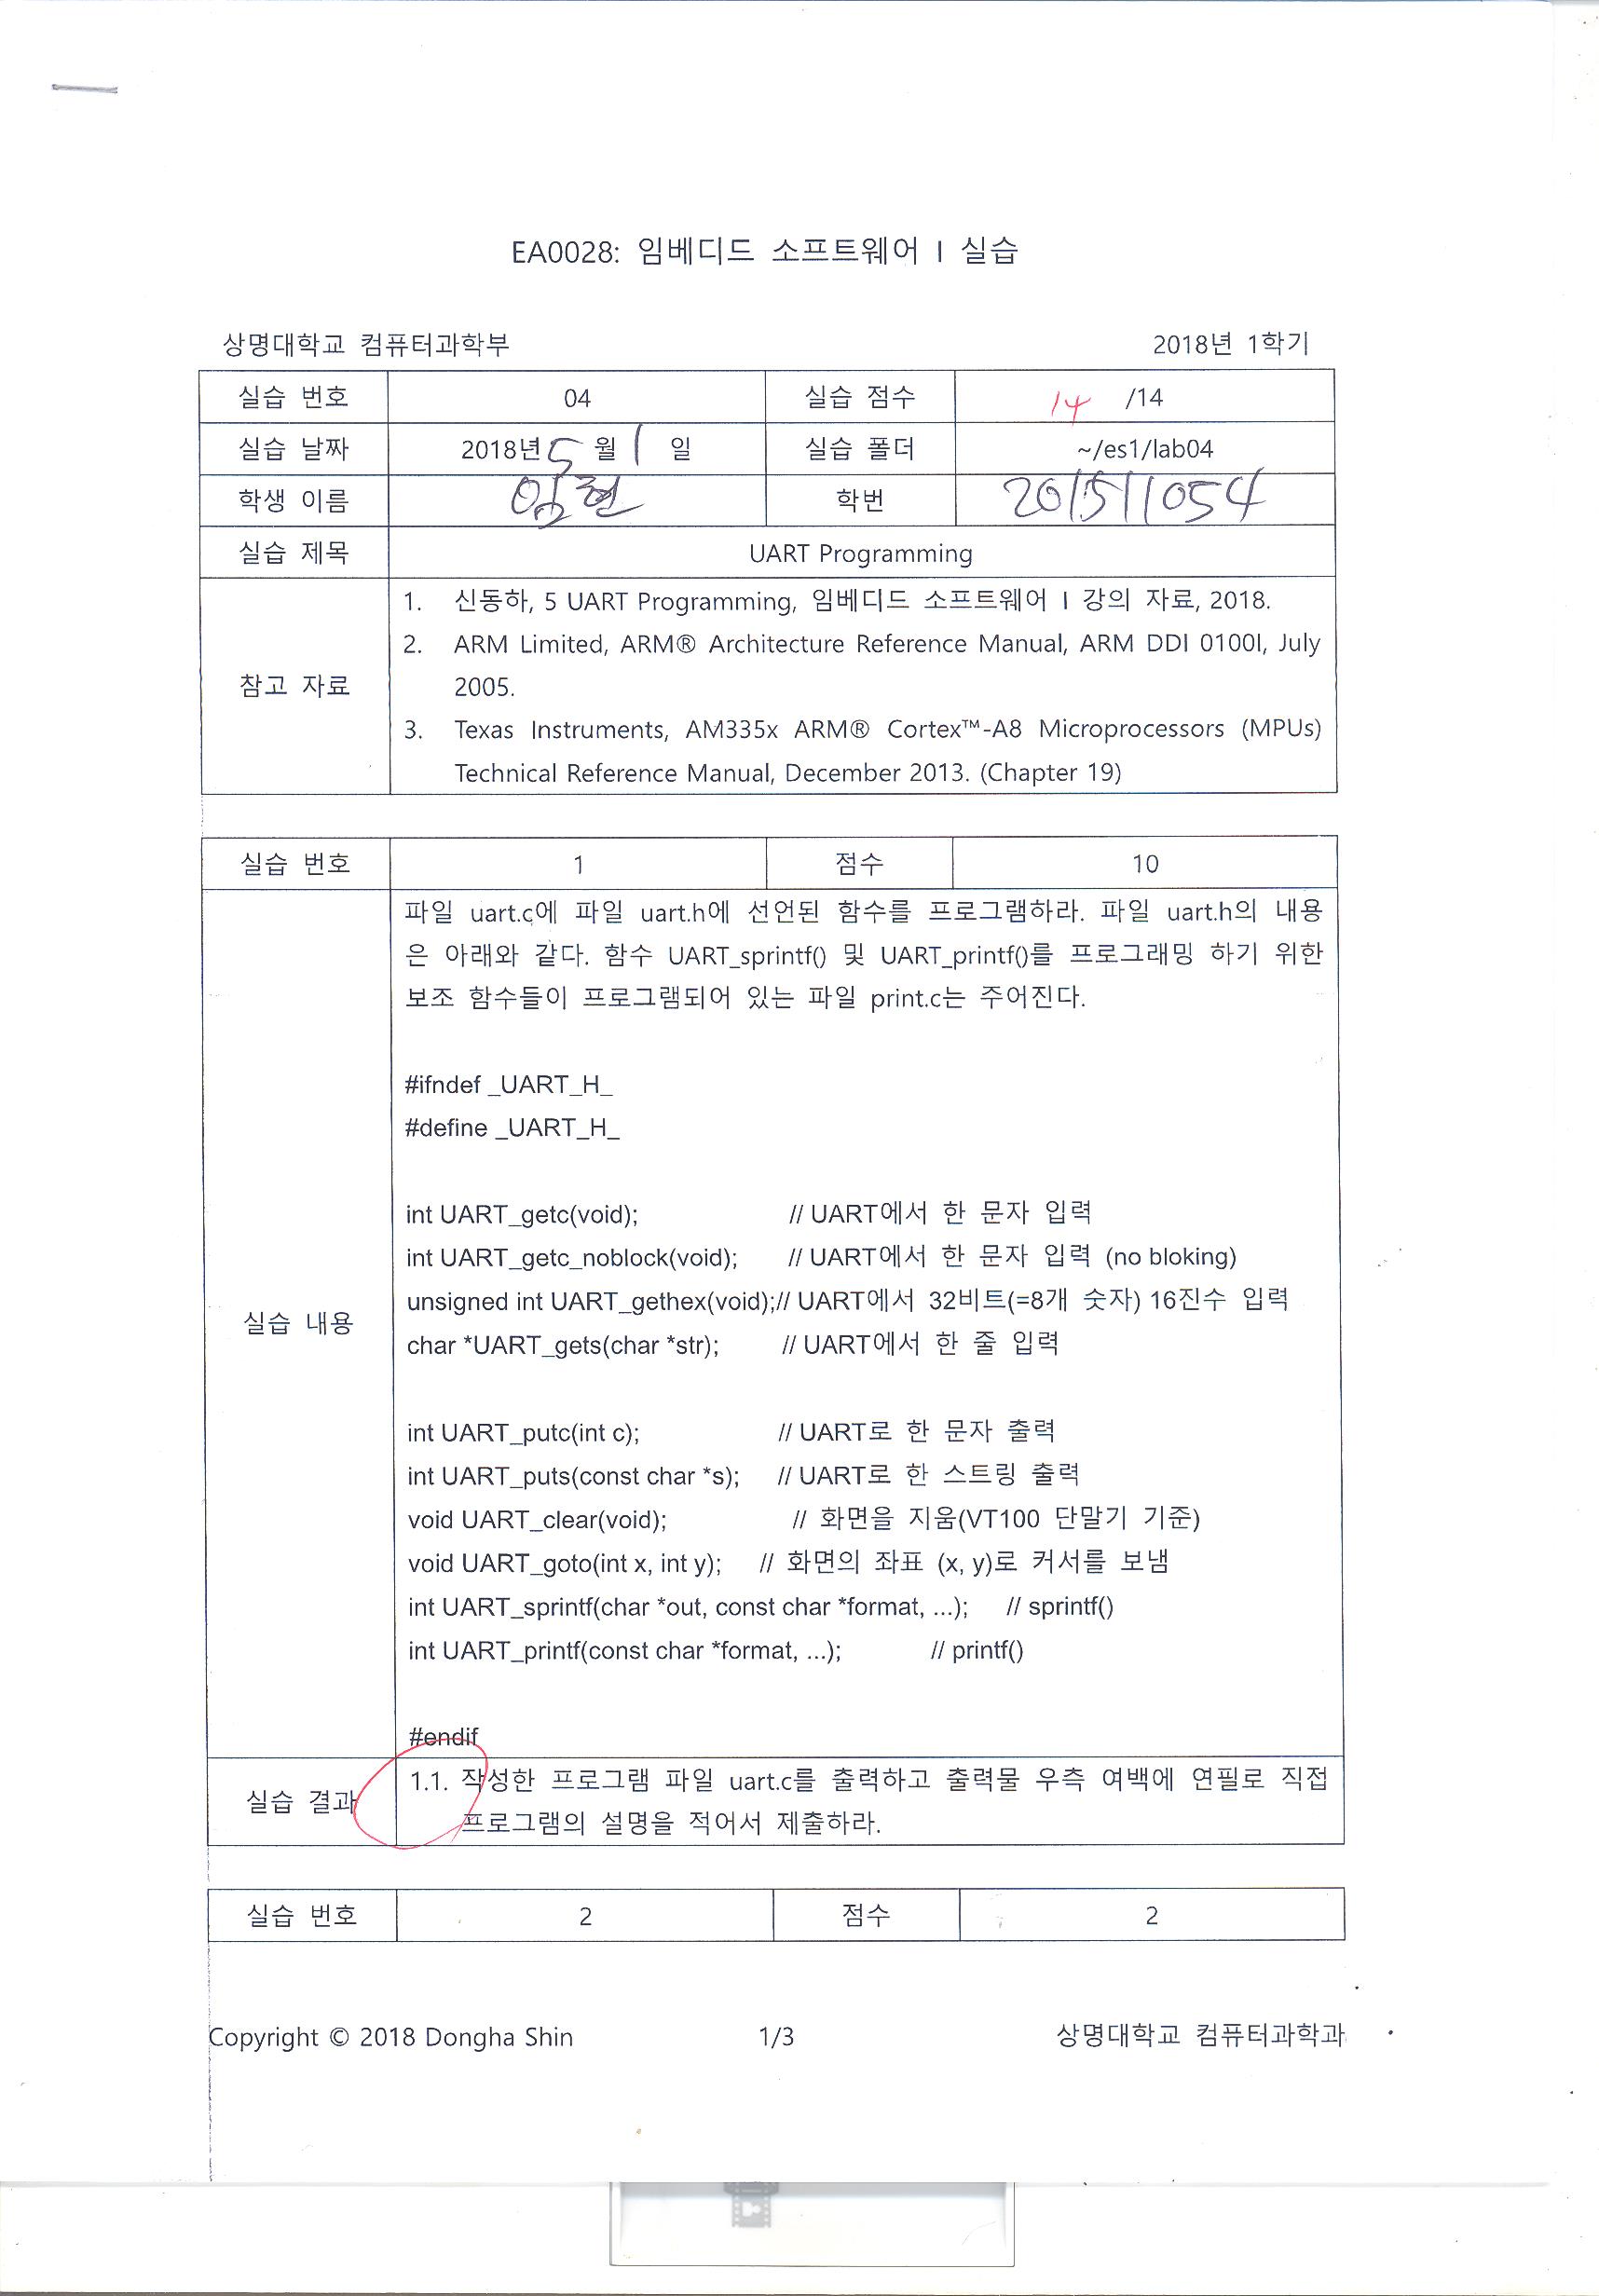 EA0028: 임베디드 소프트웨어 I 실습
상명대학교 컴퓨터과학부 2018년 1학기
실습 번호 04 실습 점수 14 /14
실습 날짜 2018년 5 월 1 일 실습 폴더 ~/es1/lab04
학생 이름 임현 학번 201511054
실습 제목 UART Programming
참고 자료
1. 신동하, 5 UART Programming, 임베디드 소프트웨어 I 강의 자료, 2018.
2. ARM Limited, ARM® Architecture Reference Manual, ARM DDI 0100I, July
2005.
3. Texas Instruments, AM335x ARM® Cortex™-A8 Microprocessors (MPUs)
Technical Reference Manual, December 2013. (Chapter 19)
실습 번호 1 점수 10
실습 내용
파일 uart.c에 파일 uart.h에 선언된 함수를 프로그램하라. 파일 uart.h의 내용
은 아래와 같다. 함수 UART_sprintf() 및 UART_printf()를 프로그래밍 하기 위한
보조 함수들이 프로그램되어 있는 파일 print.c는 주어진다.
#ifndef _UART_H_
#define _UART_H_
int UART_getc(void); // UART에서 한 문자 입력
int UART_getc_noblock(void); // UART에서 한 문자 입력 (no bloking)
unsigned int UART_gethex(void);// UART에서 32비트(=8개 숫자) 16진수 입력
char *UART_gets(char *str); // UART에서 한 줄 입력
int UART_putc(int c); // UART로 한 문자 출력
int UART_puts(const char *s); // UART로 한 스트링 출력
void UART_clear(void); // 화면을 지움(VT100 단말기 기준)
void UART_goto(int x, int y); // 화면의 좌표 (x, y)로 커서를 보냄
int UART_sprintf(char *out, const char *format, ...); // sprintf()
int UART_printf(const char *format, ...); // printf()
#endif
실습 결과
1.1. 작성한 프로그램 파일 uart.c를 출력하고 출력물 우측 여백에 연필로 직접
프로그램의 설명을 적어서 제출하라.
실습 번호 2 점수 2
Copyright © 2018 Dongha Shin 1/3 상명대학교 컴퓨터과학과